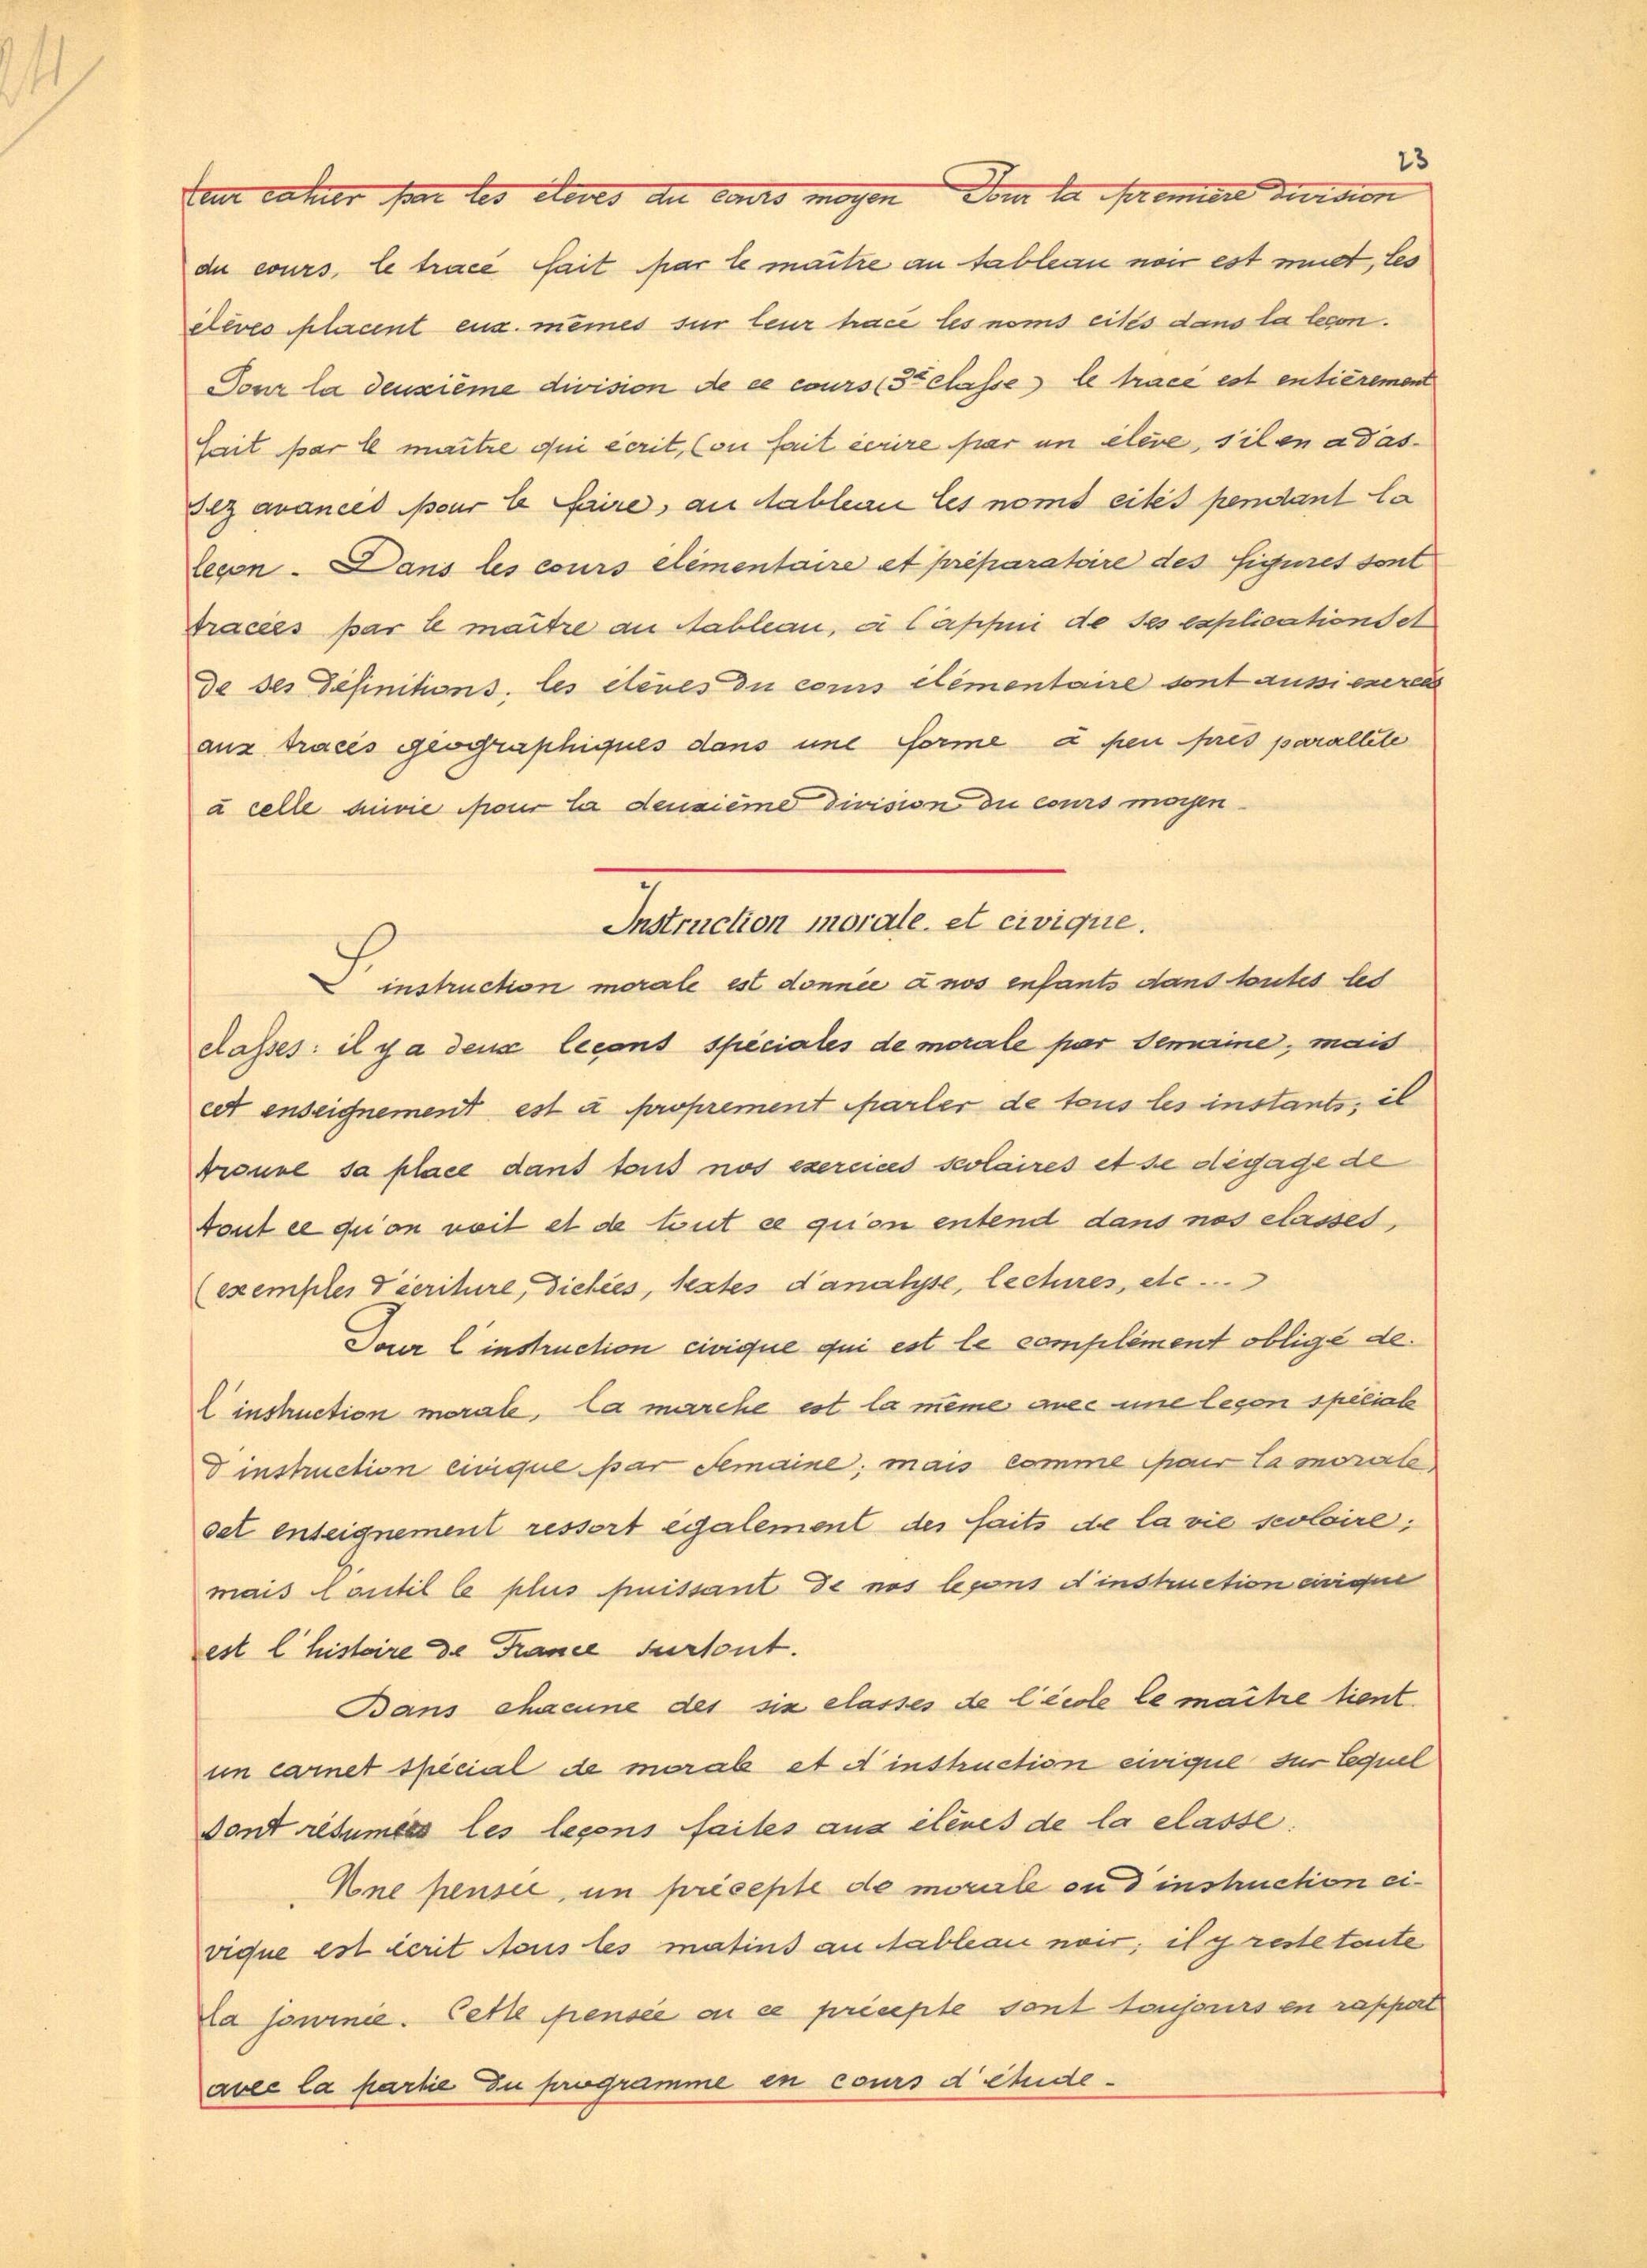 24
23
leur cahier par les élèves du cours moyen Pour la première division
du cours, le tracé fait par le maître au tableau noir est muet, les
élèves placent eux. mêmes sur leur tracé les noms cités dans la leçon.
Pour la deuxième division de ce cours (3e classe) le tracé est entièrement
fait par le maître qui écrit, (ou fait écrire par un élève, s'il en a d'as-
sez avancés pour le faire, au tableau les noms cités pendant la
leçon. Dans les cours élémentaire et préparatoire des figures sont
tracées par le maître au tableau, à l'appui de ses explications et
de ses définitions, les élèves du cours élémentaire sont aussi exercés
aux tracés géographiques dans une forme à peu près parallèle
à celle suivie pour la deuxième division du cours moyen.
Instruction morale. et civique.
L'instruction morale est donnée à nos enfants dans toutes les
classes: il y a deux leçons spéciales de morale par semaine, mais
cet enseignement est à proprement parler de tous les instants, il
trouve sa place dans tous nos exercices scolaires et se dégage de
tout ce qu'on voit et de tout ce qu'on entend dans nos classes,
(exemples d'écriture, dictées, textes d'analyse, lectures, etc...)
Pour l'instruction civique qui est le complément obligé de.
l'instruction morale, la marche est la même avec une leçon spéciale
d'instruction civique par semaine; mais comme pour la morale,
cet enseignement ressort également des faits de la vie scolaire;
mais l'outil le plus puissant de nos leçons d'instruction civique
est l'histoire de France surtout.
Dans chacune des six classes de l'école le maître tient.
un carnet spécial de morale et d'instruction civique sur lequel
sont résumées les leçons faites aux élèves de la classe.
Une pensée, un précepte de morale ou d'instruction ci-
vique est écrit tous les matins au tableau noir; il y reste toute
la journée. Cette pensée ou ce précepte sont toujours en rapport
avec la partie du programme en cours d'étude-